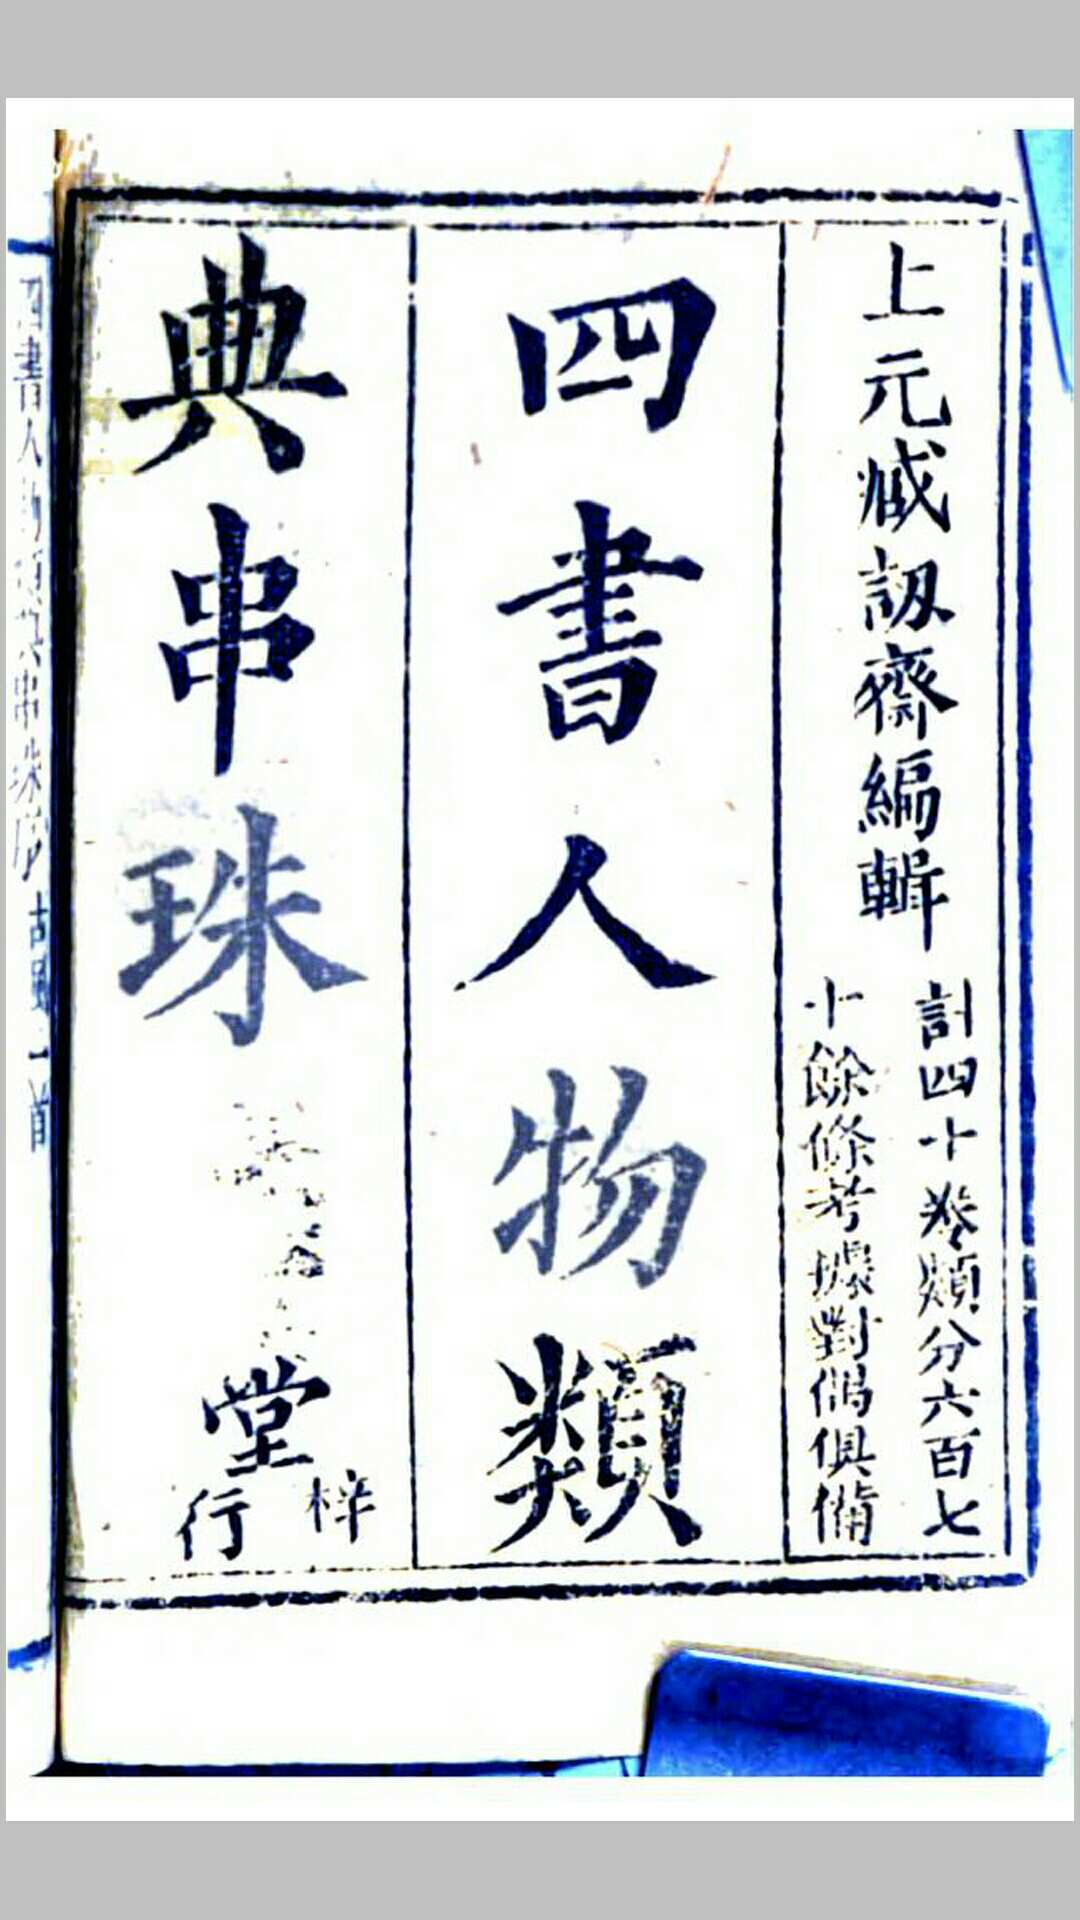 上元臧訒齋編輯
計四十卷類分六百七
十餘條考據對偶俱備
四書人物類
典串珠
堂
梓
行
四書人物類典串珠序